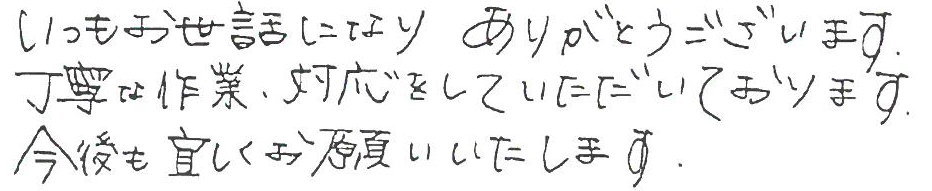 いつもお世話になり ありがとうございます.
丁寧な作業、対応をしていただいております.
今後も宜しくお願いいたします.